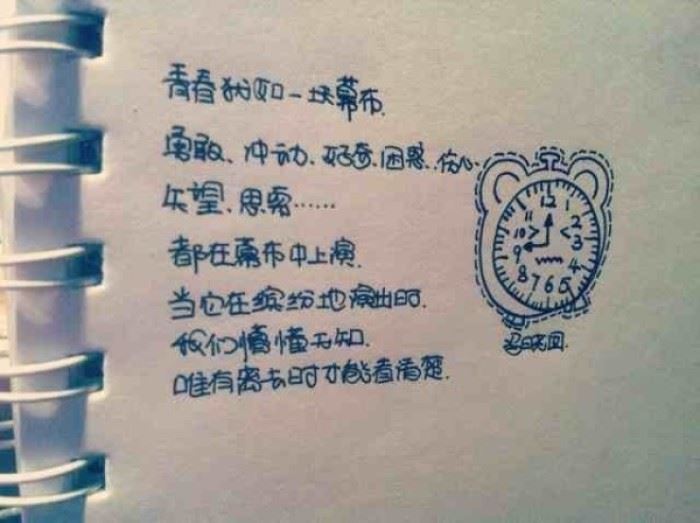 青春犹如一块幕布.
勇敢、冲动、好奇、困惑、伤心、
失望、思索……
都在幕布中上演.
当它在缤纷地演出时.
我们懵懂无知.
唯有离去时才能看清楚.
12
11 1
10 2
9 3
8 4
7 6 5